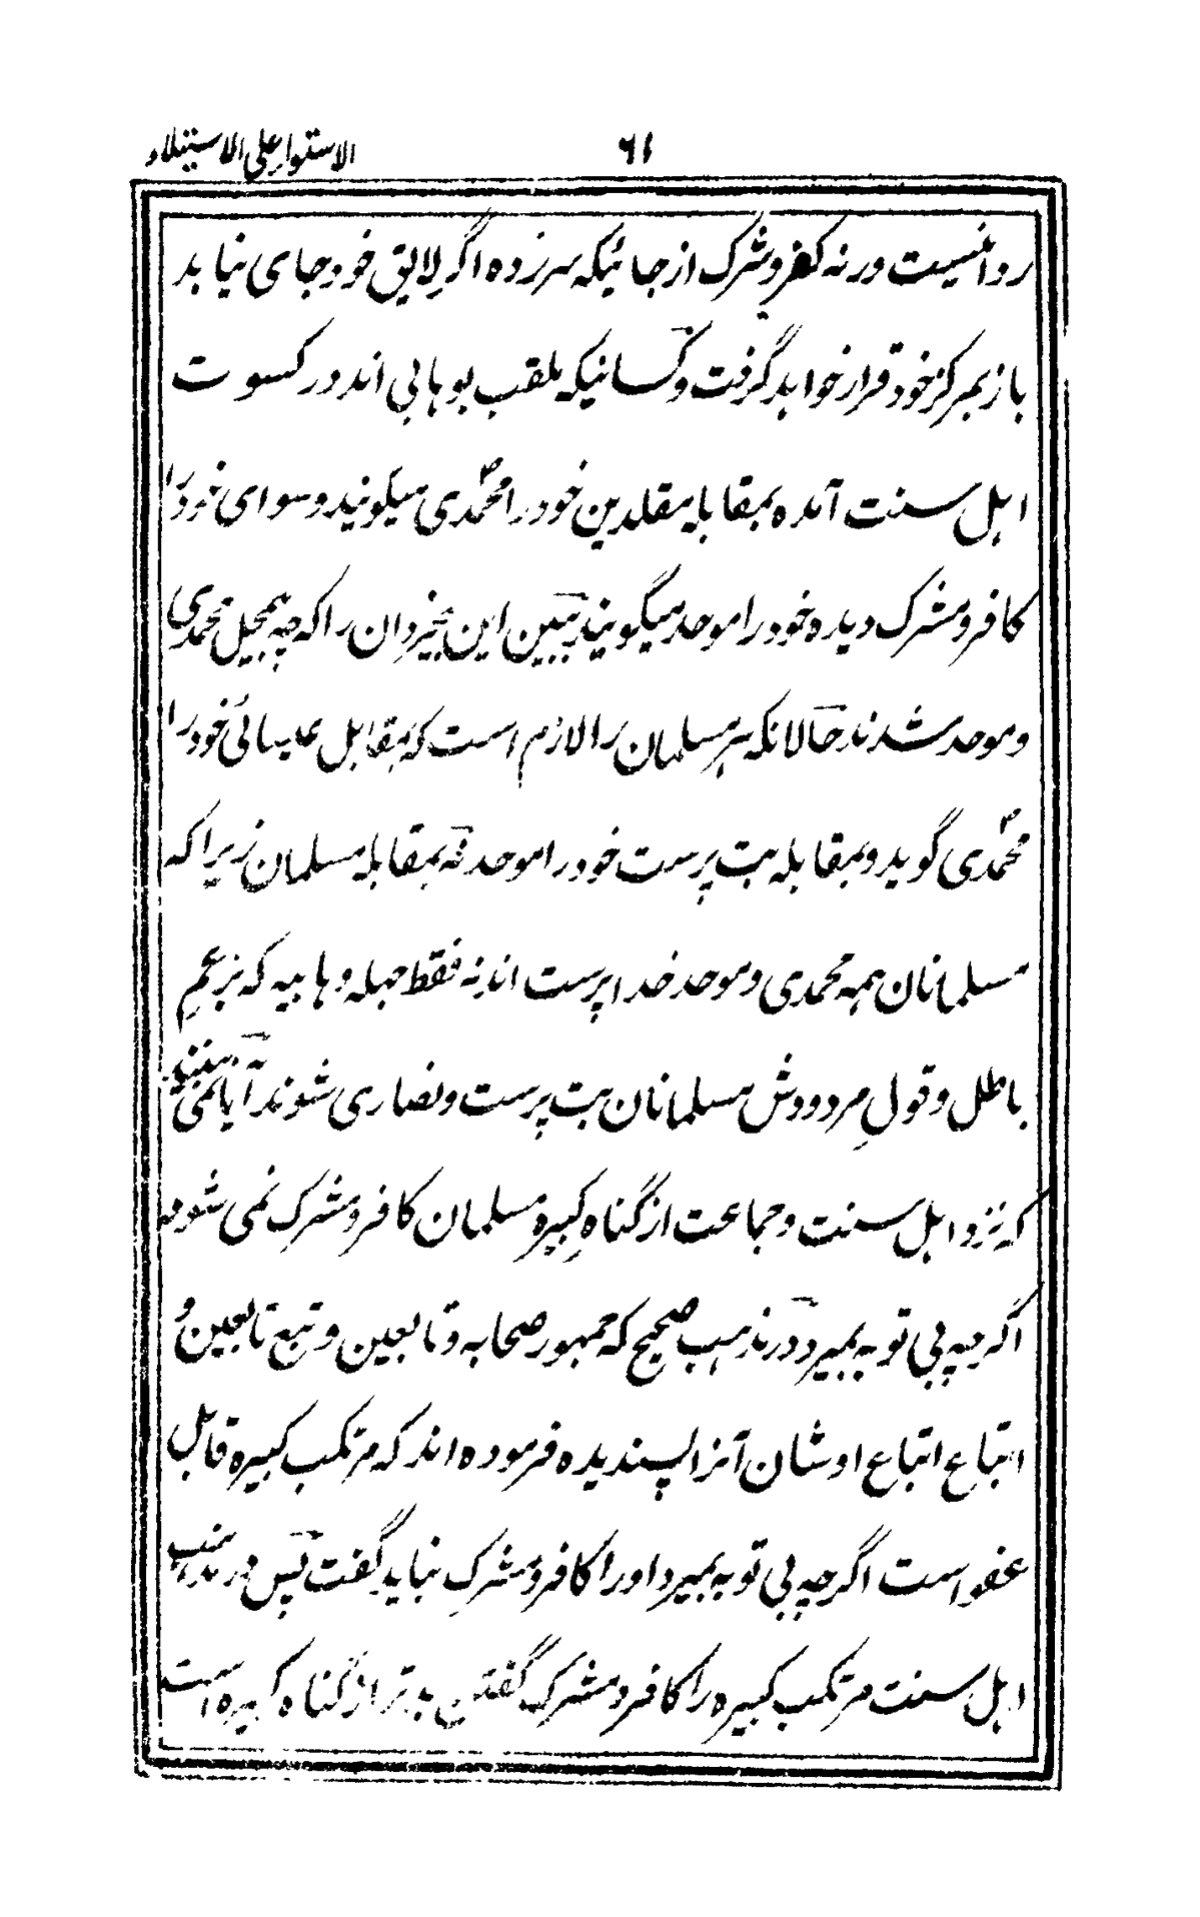 الاستواء علی الاستیلاء
۶۱
روا نیست ورنه کفر و شرک از جائیکه سرزده اگر لایق خود جای نیابد
باز بمرکز خود قرار خواهد گرفت و کسانیکه ملقب بوهابی اند در کسوت
اهل سنت آمده بمقابله مقلدین خود را محمدی میگویند و سوای خود را
کافر و مشرک دیده خود را موحد میگویند ببین این بیخردان را که چه بیمحل محمدی
و موحد شدند حالانکه هر مسلمان را لازم است که بمقابل عیسائی خود را
محمدی گوید و بمقابله بت پرست خود را موحد نه بمقابله مسلمان زیرا که
مسلمانان همه محمدی و موحد خدا پرست اند نه فقط جهله وهابیه که بزعمِ
باطل و قولِ مردودش مسلمانان بت پرست و نصاری شوند آیا نمی بینند
که نزد اهل سنت و جماعت از گناهِ کبیره مسلمان کافر و مشرک نمی شود
اگرچه بی توبه بمیرد در مذهب صحیح که جمهور صحابه و تابعین و تبع تابعین و
اتباع اتباع اوشان آنرا پسندیده فرموده اند که مرتکب کبیره قابل
عفو است اگرچه بی توبه بمیرد او را کافر و مشرک نباید گفت پس در مذهب
اهل سنت مرتکب کبیره را کافر و مشرک گفتن بدتر از گناه کبیره است